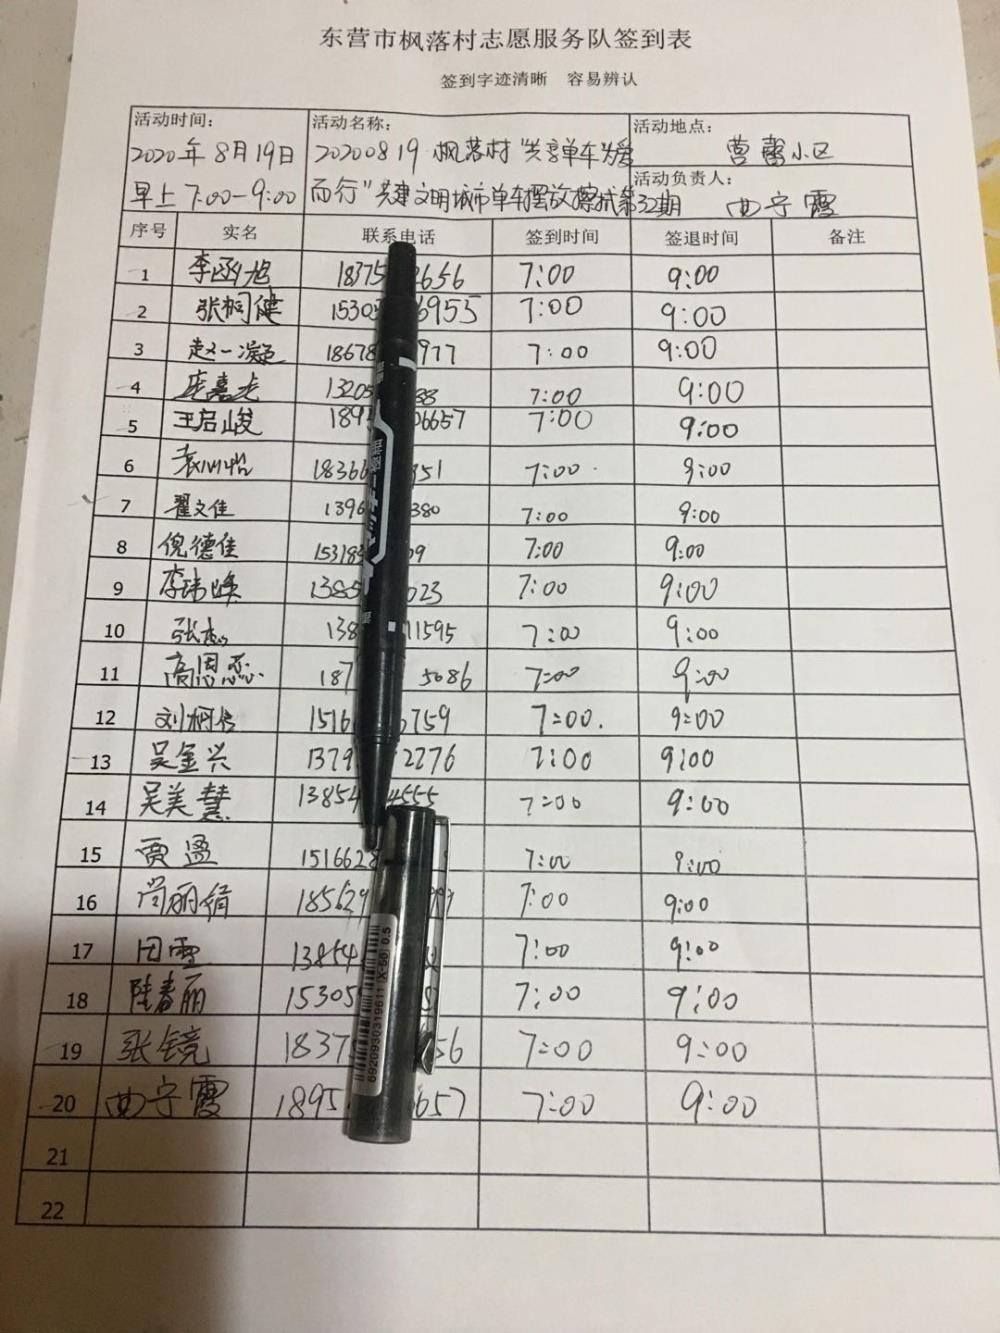 东营市枫落村志愿服务队签到表
签到字迹清晰 容易辨认
活动时间: 活动名称: 活动地点:
2020年8月19日 20200819枫落村"共享单车为爱 营馨小区
早上7:00-9:00 而行"共建文明城市单车摆放擦拭第32期 活动负责人: 曲宁霞
序号 实名 联系电话 签到时间 签退时间 备注
1 李函旭 18375 656 7:00 9:00
2 张桐健 1530 6953 7:00 9:00
3 赵一凝 18678 977 7:00 9:00
4 庞嘉 1320 88 7:00 9:00
5 王启峻 189 06657 7:00 9:00
6 袁心怡 18366 351 7:00 9:00
7 翟文佳 1396 380 7:00 9:00
8 倪德佳 15318 09 7:00 9:00
9 李玮峰 1385 023 7:00 9:00
10 张 138 11595 7:00 9:00
11 高恩恋 187 5086 7:00 9:00
12 刘桐 1516 759 7:00 9:00
13 吴金兴 1379 2276 7:00 9:00
14 吴美慧 13854 4555 7:00 9:00
15 贾盈 1516628 7:00 9:00
16 尚丽绢 185629 99 7:00 9:00
17 田雪 13854 7:00 9:00
18 陆春丽 15305 7:00 9:00
19 张镜 1837 56 7:00 9:00
20 曲宁霞 1895 657 7:00 9:00
21
22
6920930319611 (X-50) 0.5